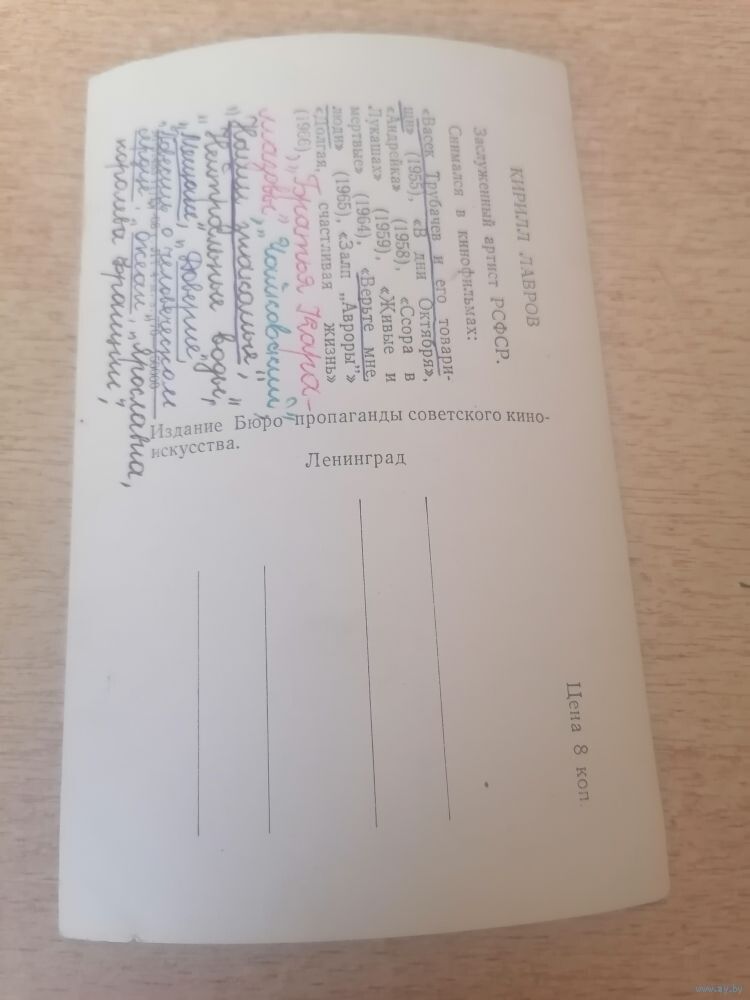 КИРИЛЛ ЛАВРОВ
Заслуженный артист РСФСР.
Снимался в кинофильмах:
«Васек Трубачев и его товари-
щи» (1955), «В дни Октября»,
(1958), «Ссора в
«Андрейка» (1959), «Живые и
Лукашах»
мертвые» (1964), «Верьте мне,
люди» (1965), «Залп „Авроры"»
«Долгая, счастливая жизнь»
(1966), "Братья Кара-
мазовы", "Чайковский",
"Наши знакомые",
"Нейтральные воды",
"Мещане", "Доверие",
"Поезия о человеческом
"Океан", "Ярославна,
королева Франции",
Издание Бюро пропаганды советского кино-
искусства.
Ленинград
Цена 8 коп.
www.ay.by